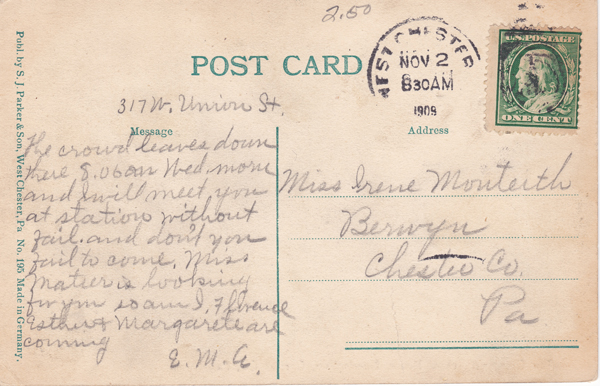 2.50
Publ. by S. J. Parker & Son, West Chester, Pa No. 195 Made in Germany.
POST CARD
WEST CHESTER
NOV 2
830AM
1909
U.S. POSTAGE
ONE CENT
317 W. Union St.
Message
Address
The crowd leaves down
there 8.06 am Wed. morn
and I will meet you
at station without
fail. and don't you
fail to come. Miss
is looking
for you so am I, Florence
Esther & Margarete are
coming
E. M. G.
Miss Irene Monteith
Berwyn
Chester Co.
Pa